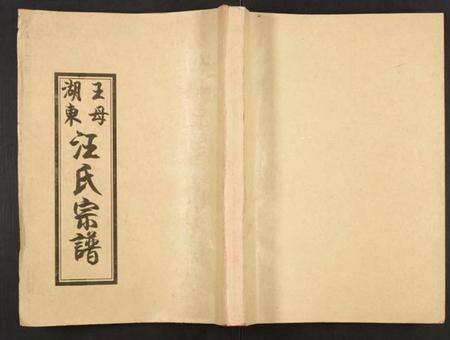 王母
湖東
汪氏宗譜